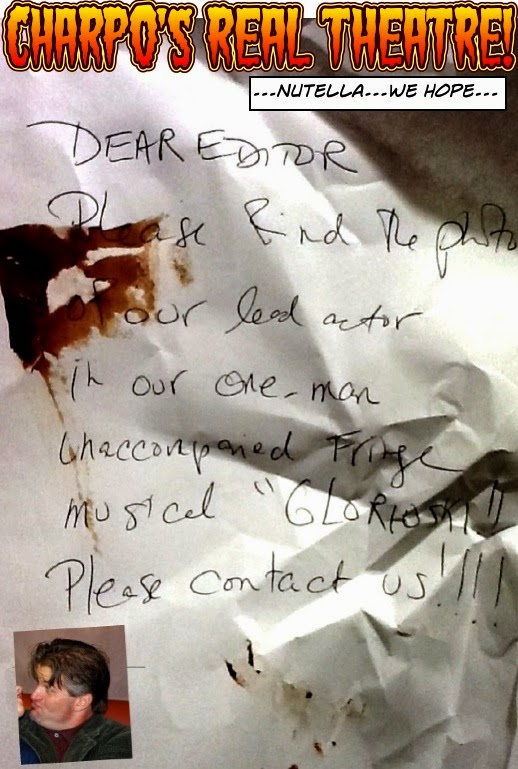 CHARPO'S REAL THEATRE!
...NUTELLA...WE HOPE...
DEAR EDITOR
Please find the photo
of our lead actor
in our one-man
unaccompanied Fringe
musical "GLORIOSKI"
Please contact us!!!!